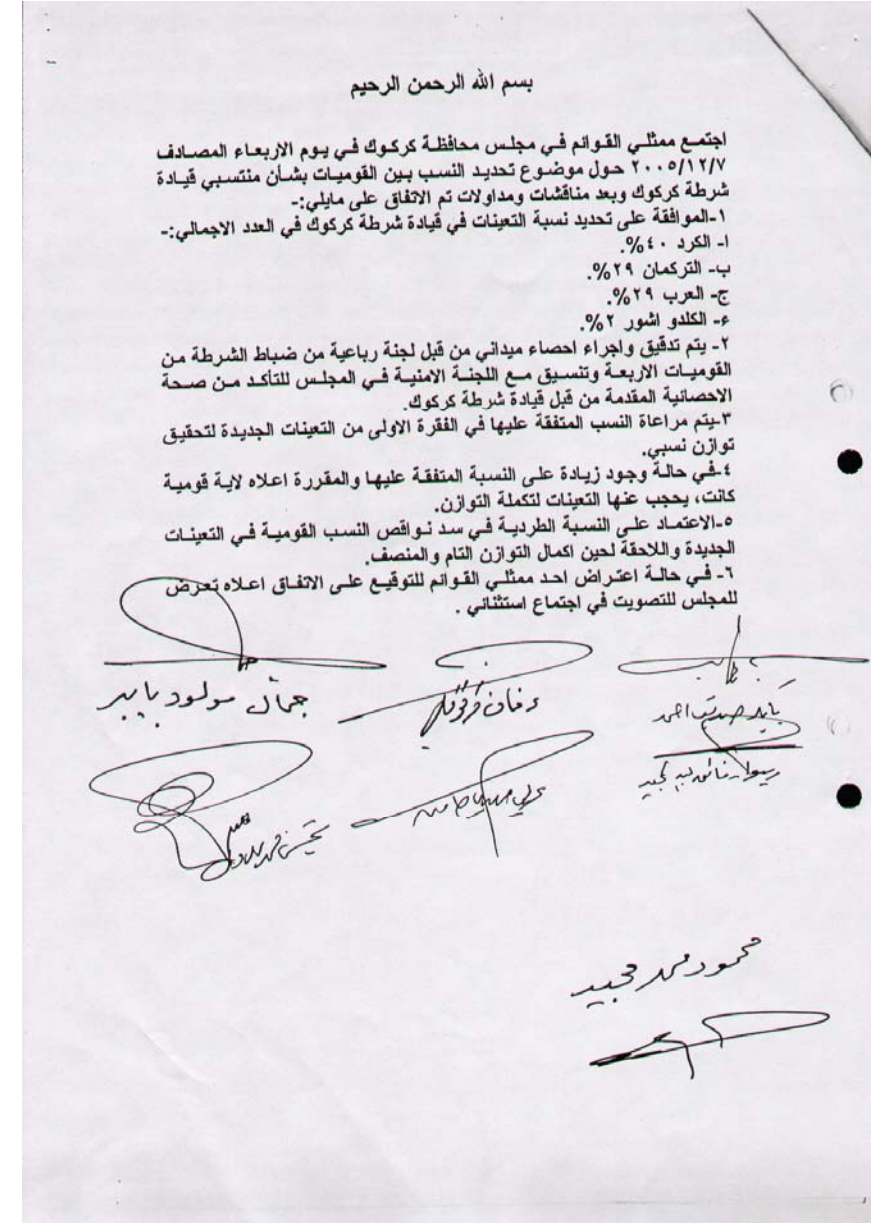 بسم الله الرحمن الرحيم
اجتمع ممثلي القوائم في مجلس محافظة كركوك في يوم الاربعاء المصادف
٢٠٠٥/١٢/٧ حول موضوع تحديد النسب بين القوميات بشأن منتسبي قيادة
شرطة كركوك وبعد مناقشات ومداولات تم الاتفاق على مايلي:-
١-الموافقة على تحديد نسبة التعينات في قيادة شرطة كركوك في العدد الاجمالي:-
ا- الكرد ٤٠%.
ب- التركمان ٢٩%.
ج- العرب ٢٩%.
ء- الكلدو اشور ٢%.
٢- يتم تدقيق واجراء احصاء ميداني من قبل لجنة رباعية من ضباط الشرطة من
القوميات الاربعة وتنسيق مع اللجنة الامنية في المجلس للتأكد من صحة
الاحصائية المقدمة من قبل قيادة شرطة كركوك.
٣-يتم مراعاة النسب المتفقة عليها في الفقرة الاولى من التعينات الجديدة لتحقيق
توازن نسبي.
٤-في حالة وجود زيادة على النسبة المتفقة عليها والمقررة اعلاه لاية قومية
كانت، يحجب عنها التعينات لتكملة التوازن.
٥-الاعتماد على النسبة الطردية في سد نواقص النسب القومية في التعينات
الجديدة واللاحقة لحين اكمال التوازن التام والمنصف.
٦- في حالة اعتراض احد ممثلي القوائم للتوقيع على الاتفاق اعلاه تعرض
للمجلس للتصويت في اجتماع استثنائي .
جمال مولود بابير
محمود محمد مجيد